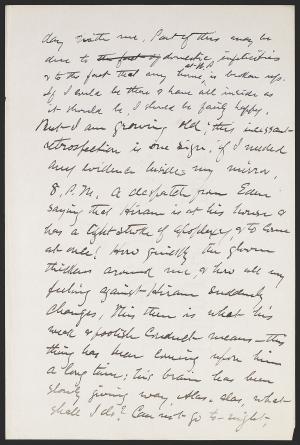 day with me. Part of this may be
due to the fact of domestic infelicities
at W. P.
& to the fact that my home is broken up.
If I could be there & have all inside as
it should be, I should be fairly happy.
But I am growing old; this incessant
retrospection is one sign, if I needed
any evidence beside my mirror.
8. P.M. A despatch from Eden
saying that Hiram is at his house &
has a light stroke of apoplexy, & to come
at once! How quickly the gloom
thickens around me, & how all my
feeling against Hiram suddenly
changes. This then is what his
weak & foolish conduct means—this
thing has been coming upon him
a long time; his brain has been
slowly giving way. Alas, alas, what
shall I do? Can not go to-night,